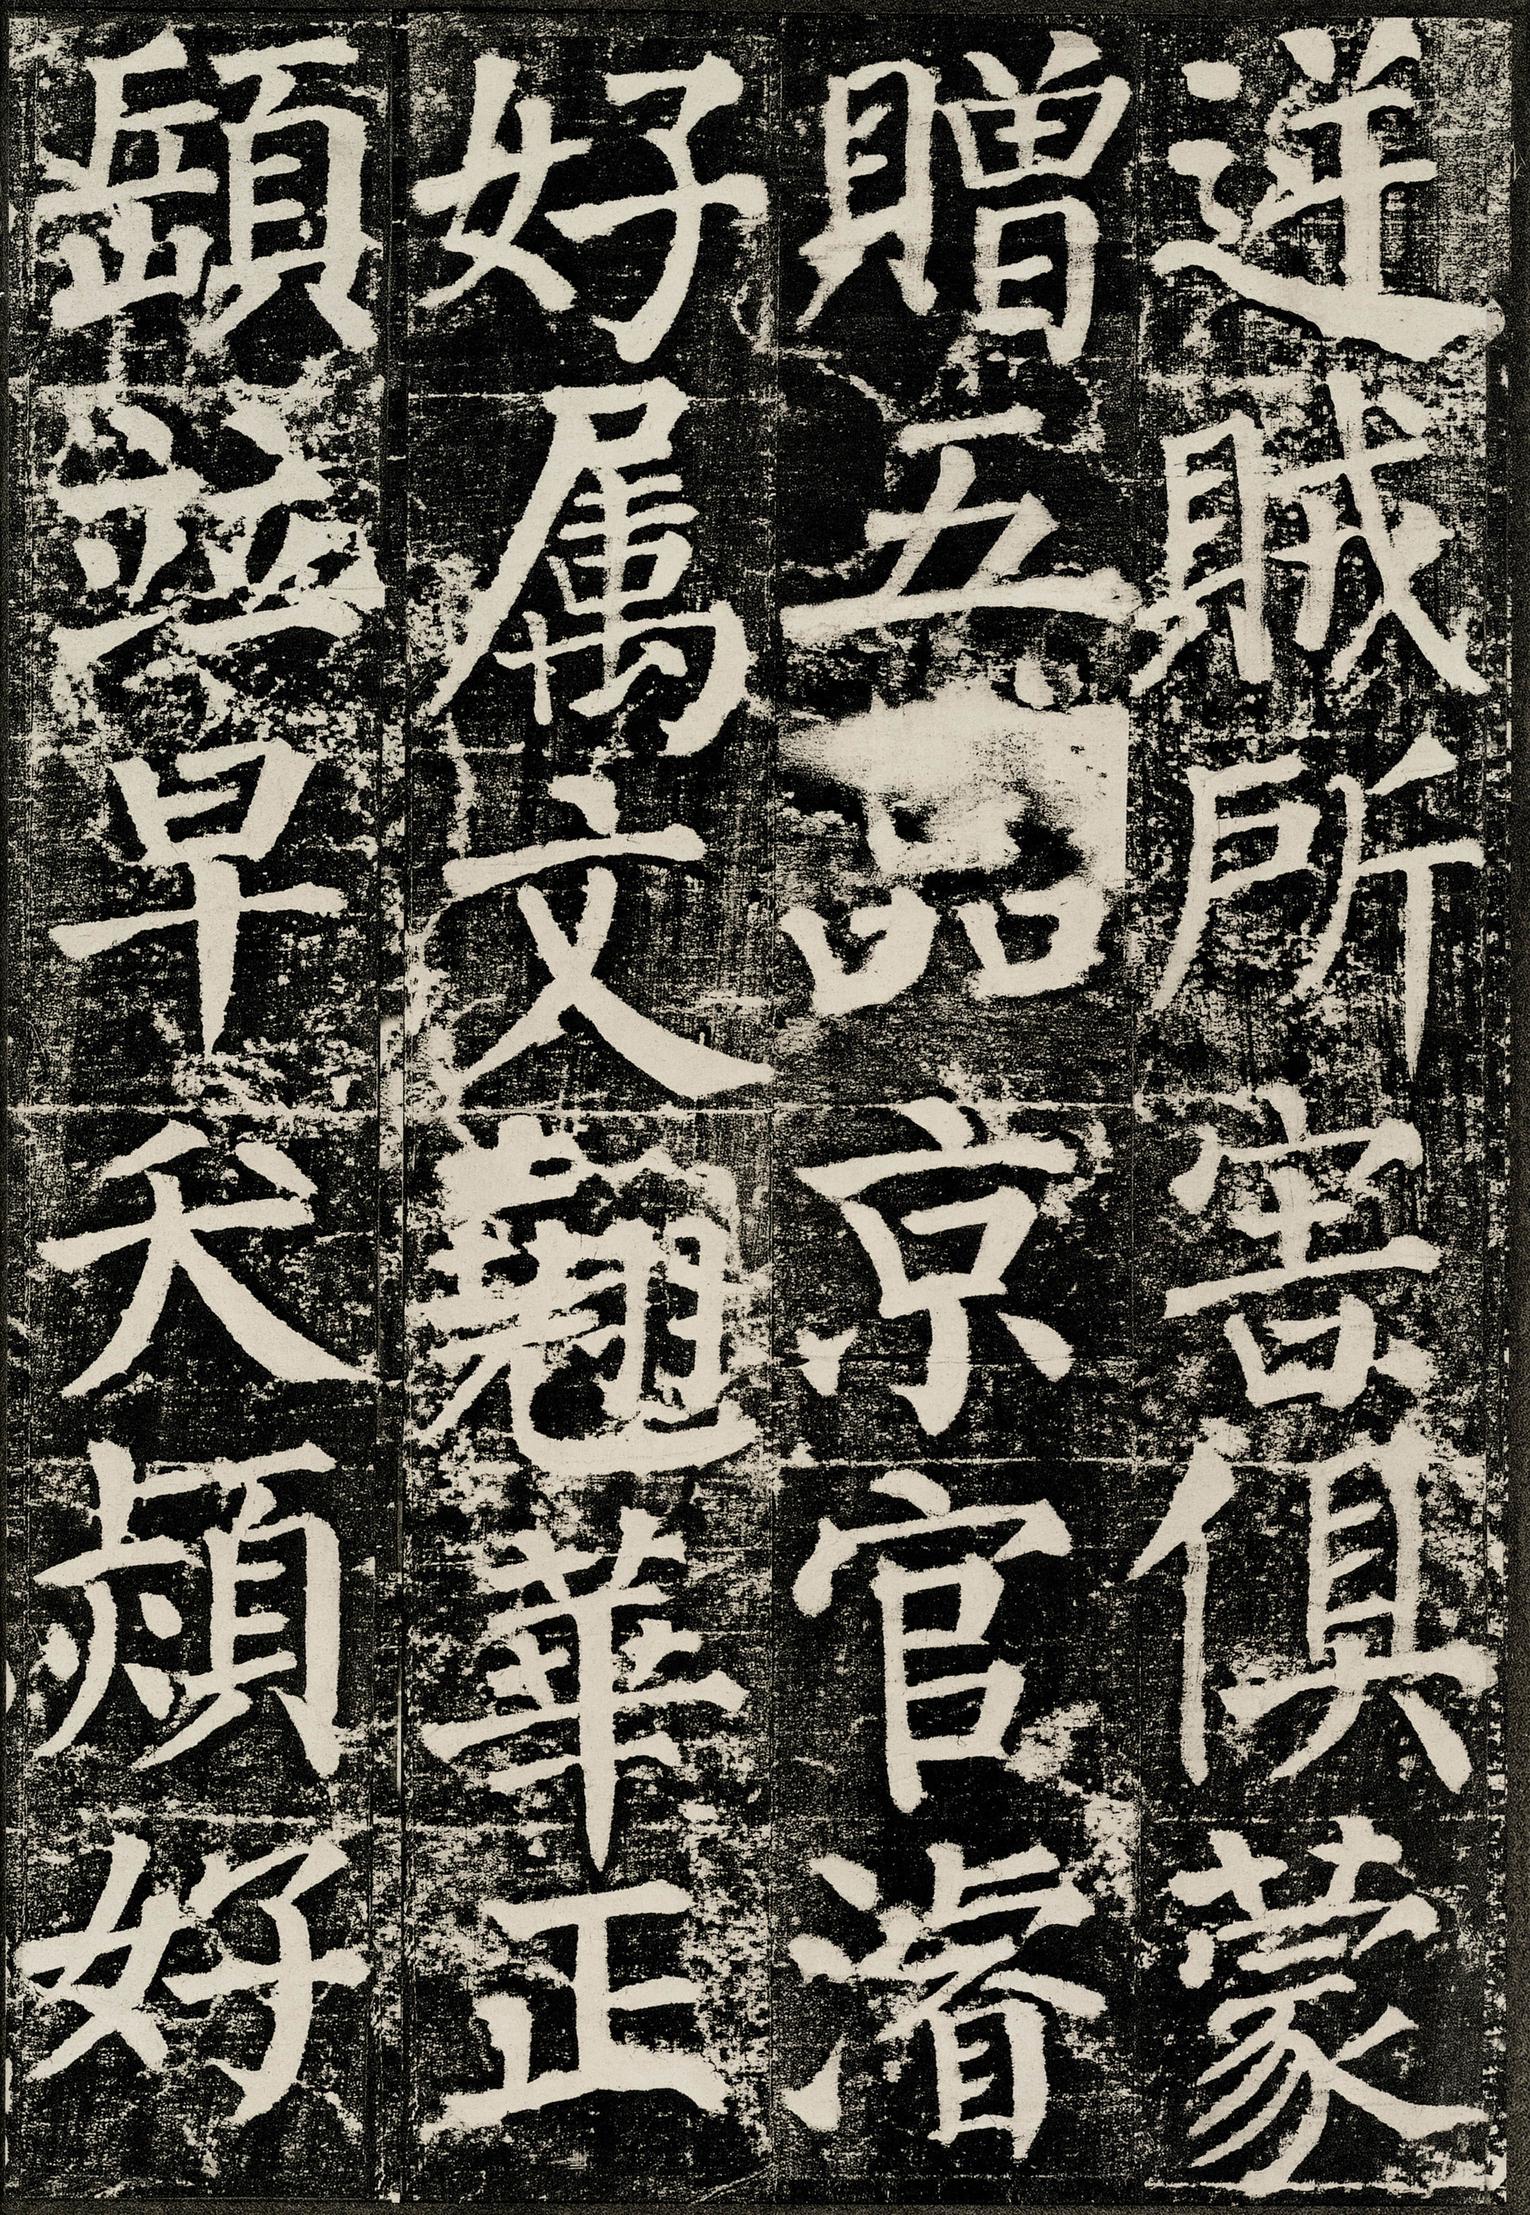 逆賊所害俱蒙
贈五品京官濬
好属文翹華正
頤竝早夭頗好